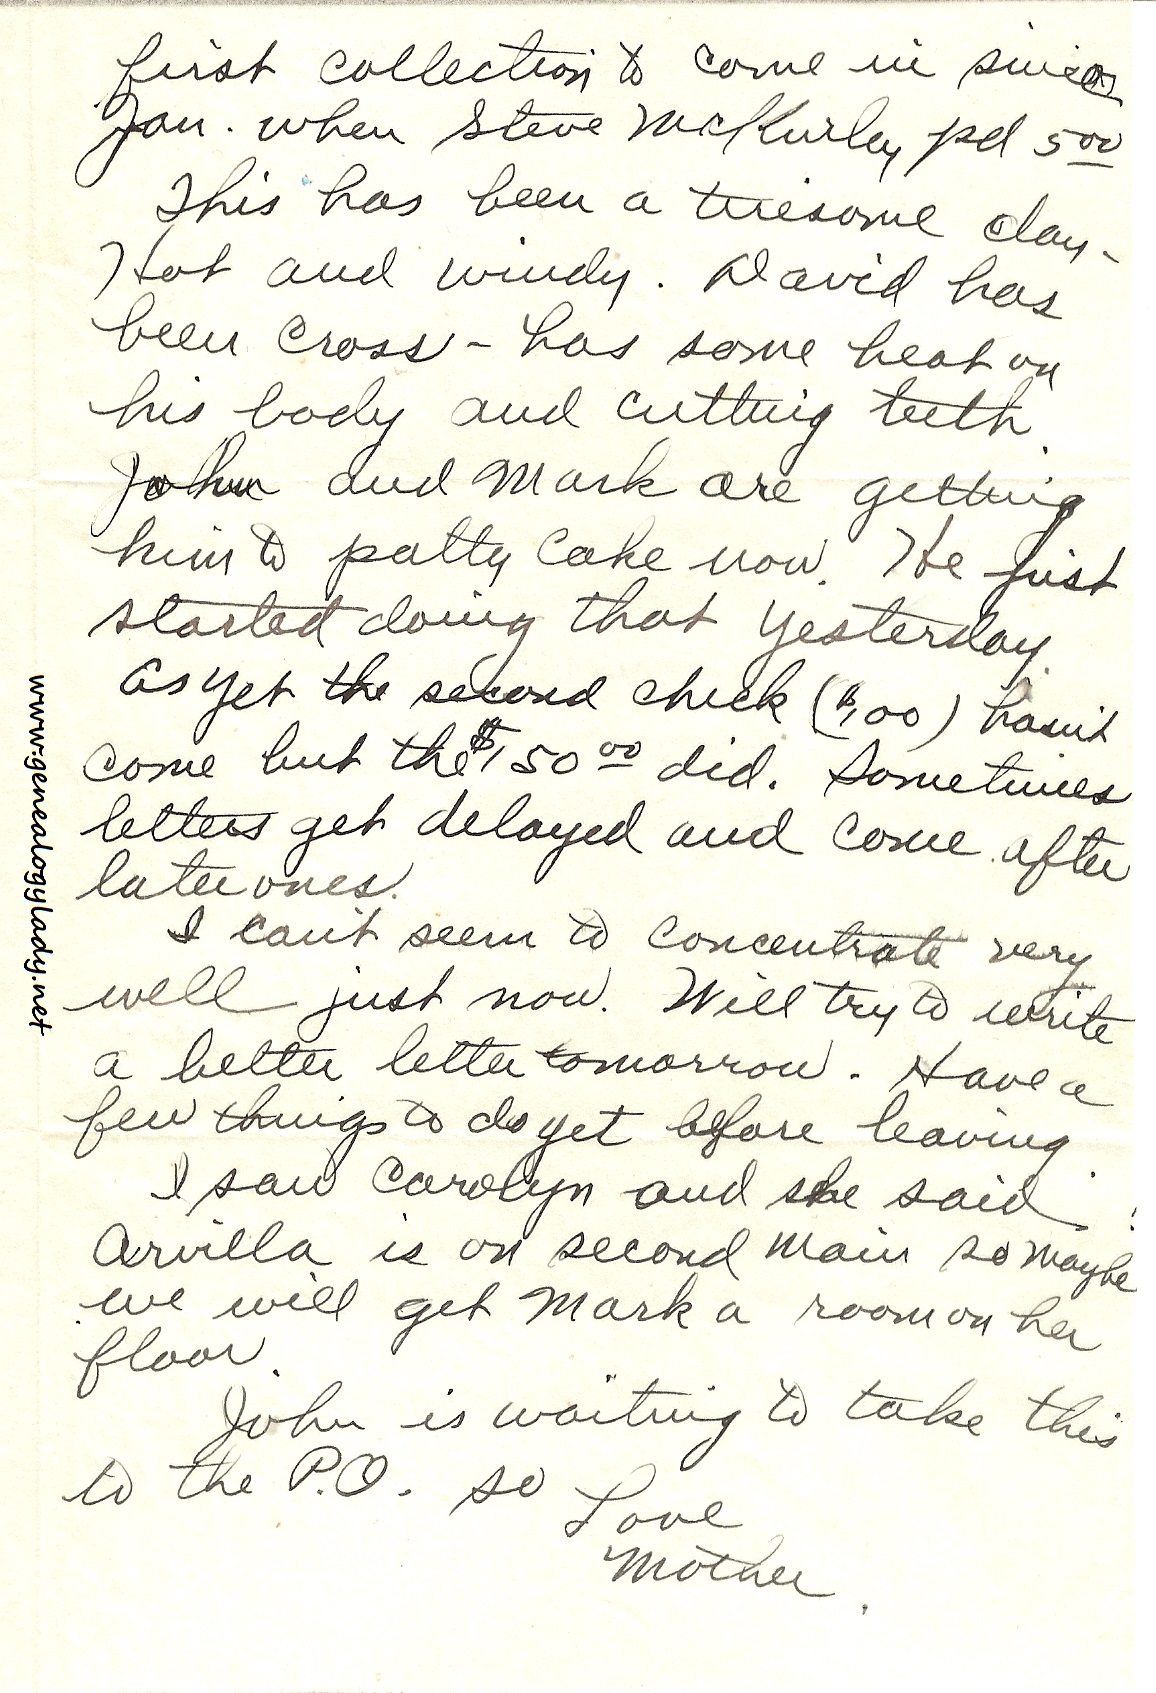 first collection to come in since
Jan. when Steve McKurley pd 5 00
This has been a tiresome day-
Hot and windy. David has
been cross - has some heat on
his body and cutting teeth.
John and Mark are getting
him to patty cake now. He just
started doing that yesterday.
As yet the second check ($100) hasn't
come but the $150 00 did. Sometimes
letters get delayed and come after
later ones.
I can't seem to concentrate very
well just now. Will try to write
a better letter tomorrow. Have a
few things to do yet before leaving.
I saw Carolyn and she said
Arvilla is on second main so maybe
we will get Mark a room on her
floor.
John is waiting to take this
to the P.O. so
Love
Mother.
www.genealogylady.net